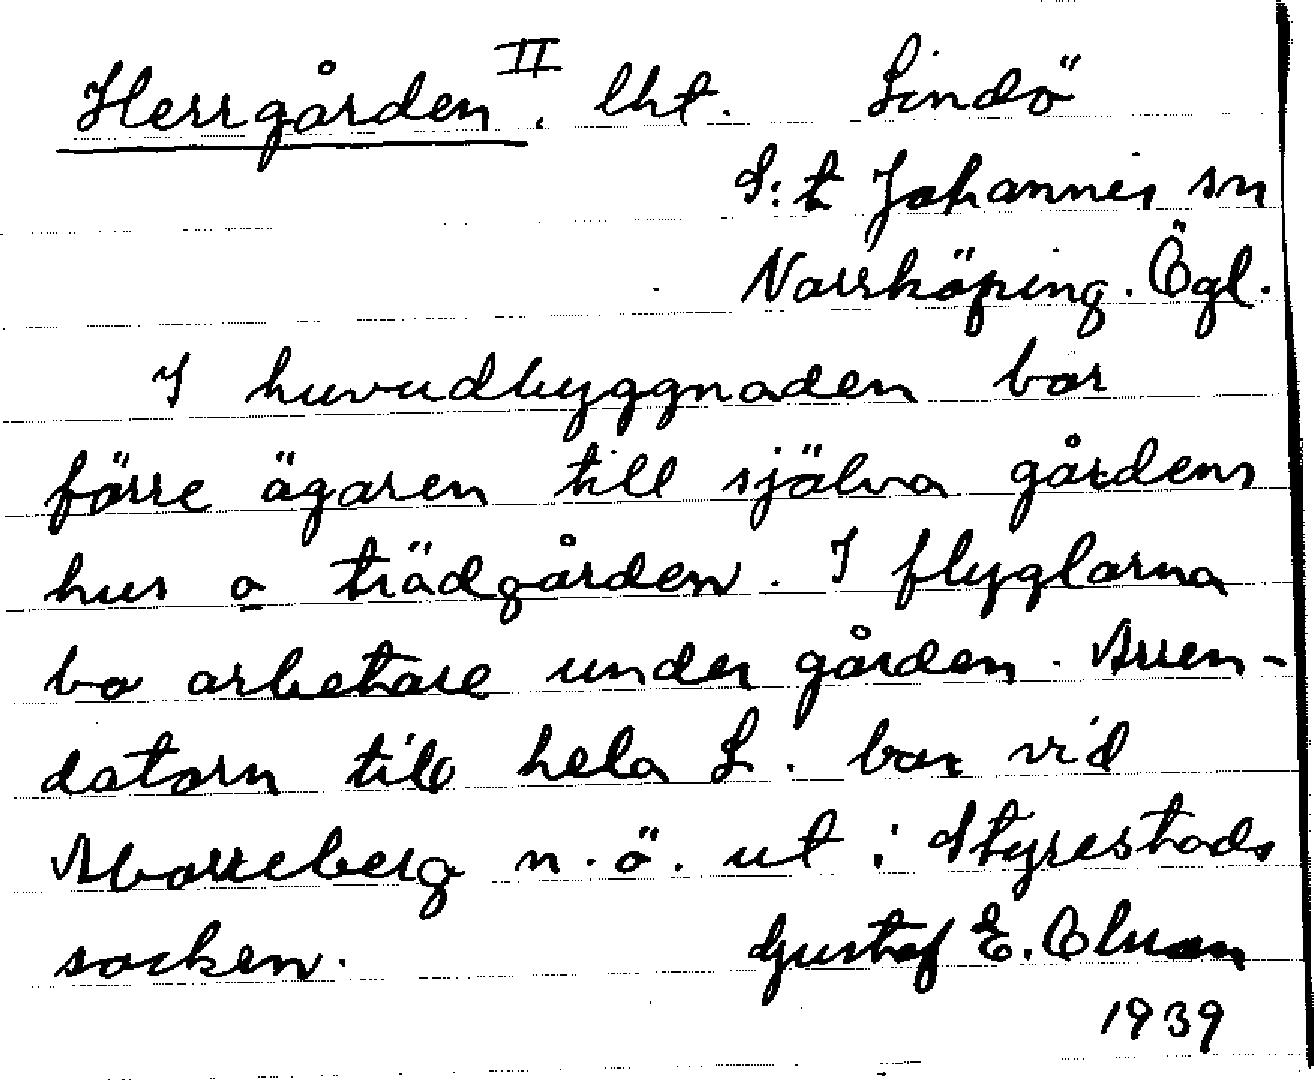 Herrgården II. lht. Lindö
S:t Johannes sn
Norrköping. Ögl.
I huvudbyggnaden bor
förre ägaren till själva gårdens
hus o trädgården. I flyglarna
bo arbetare under gården. Arren-
datorn till hela L. bor vid
Marreberg n.ö. ut i Styrestads
socken. Gustaf E. Olsson
1939